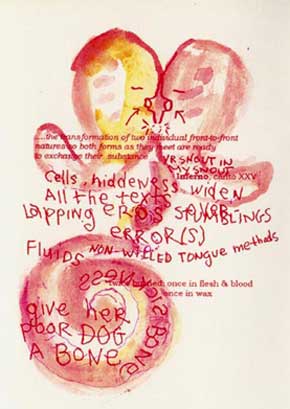 .....the transformation of two individual front-to-front
natures so both forms as they meet are ready
to exchange their substance
YR SNOUT IN
MY SNOUT
Inferno, canto XXV
Cells, hiddeness widen
All the texts
Lapping eros
STUMBLINGS
ERROR(S)
Fluids NON-WILLED TONGUE methods
twice burned: once in flesh & blood
once in wax
give her
poor DOG
A BONE